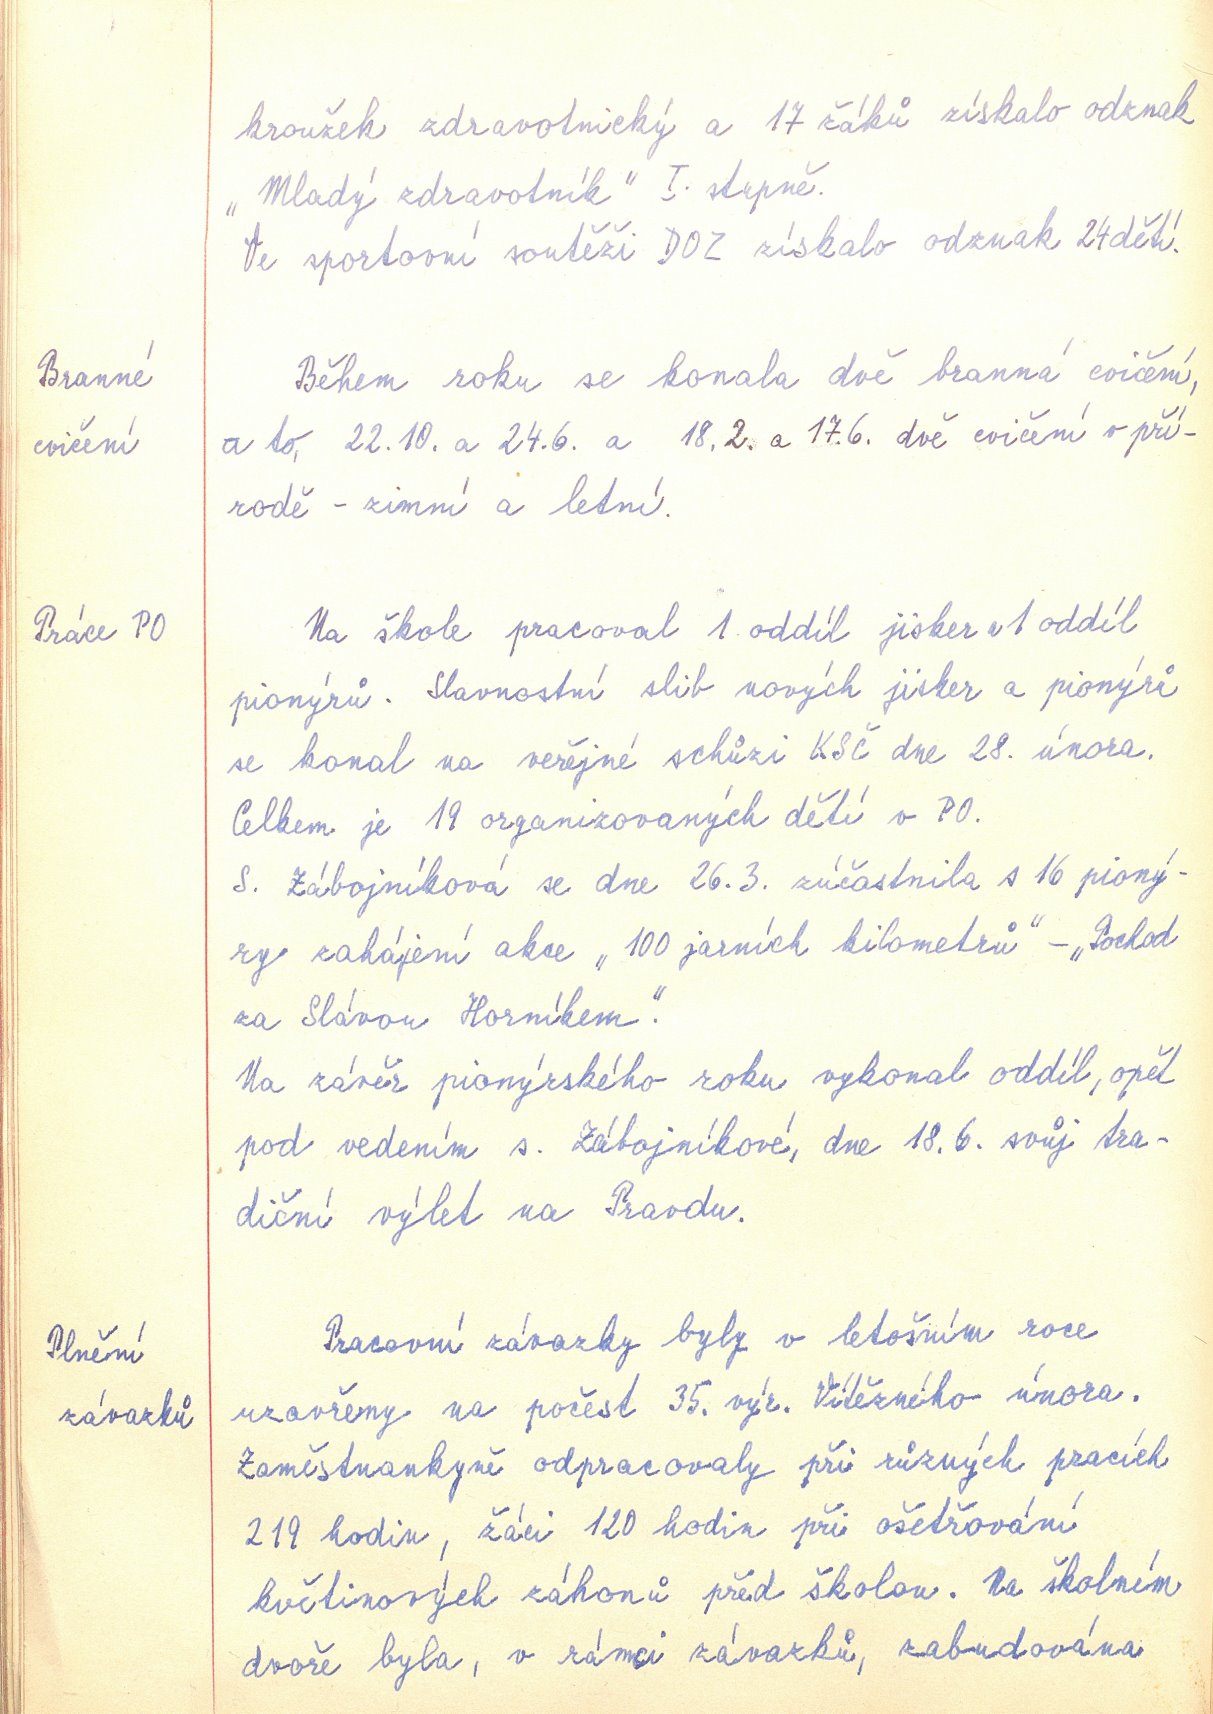 kroužek zdravotnický a 17 žáků získalo odznak
„Mladý zdravotník“ I. stupně.
Ve sportovní soutěži DOZ získalo odznak 24 dětí.
Branné
cvičení
Během roku se konala dvě branná cvičení,
a to, 22.10. a 24.6. a 18.2. a 17.6. dvě cvičení v pří-
rodě - zimní a letní.
Práce PO
Na škole pracoval 1 oddíl jisker a 1 oddíl
pionýrů. Slavnostní slib nových jisker a pionýrů
se konal na veřejné schůzi KSČ dne 28. února.
Celkem je 19 organizovaných dětí v PO.
S. Zábojníková se dne 26.3. zúčastnila s 16 pioný-
ry zahájení akce „100 jarních kilometrů“ – „Pochod
za Slávou Horníkem“.
Na závěr pionýrského roku vykonal oddíl, opět
pod vedením s. Zábojníkové, dne 18.6. svůj tra-
diční výlet na Pravdu.
Plnění
závazků
Pracovní závazky byly v letošním roce
uzavřeny na počest 35. výr. Vítězného února.
Zaměstnankyně odpracovaly při různých pracích
219 hodin, žáci 120 hodin při ošetřování
květinových záhonů před školou. Na školném
dvoře byla, v rámci závazků, zabudována